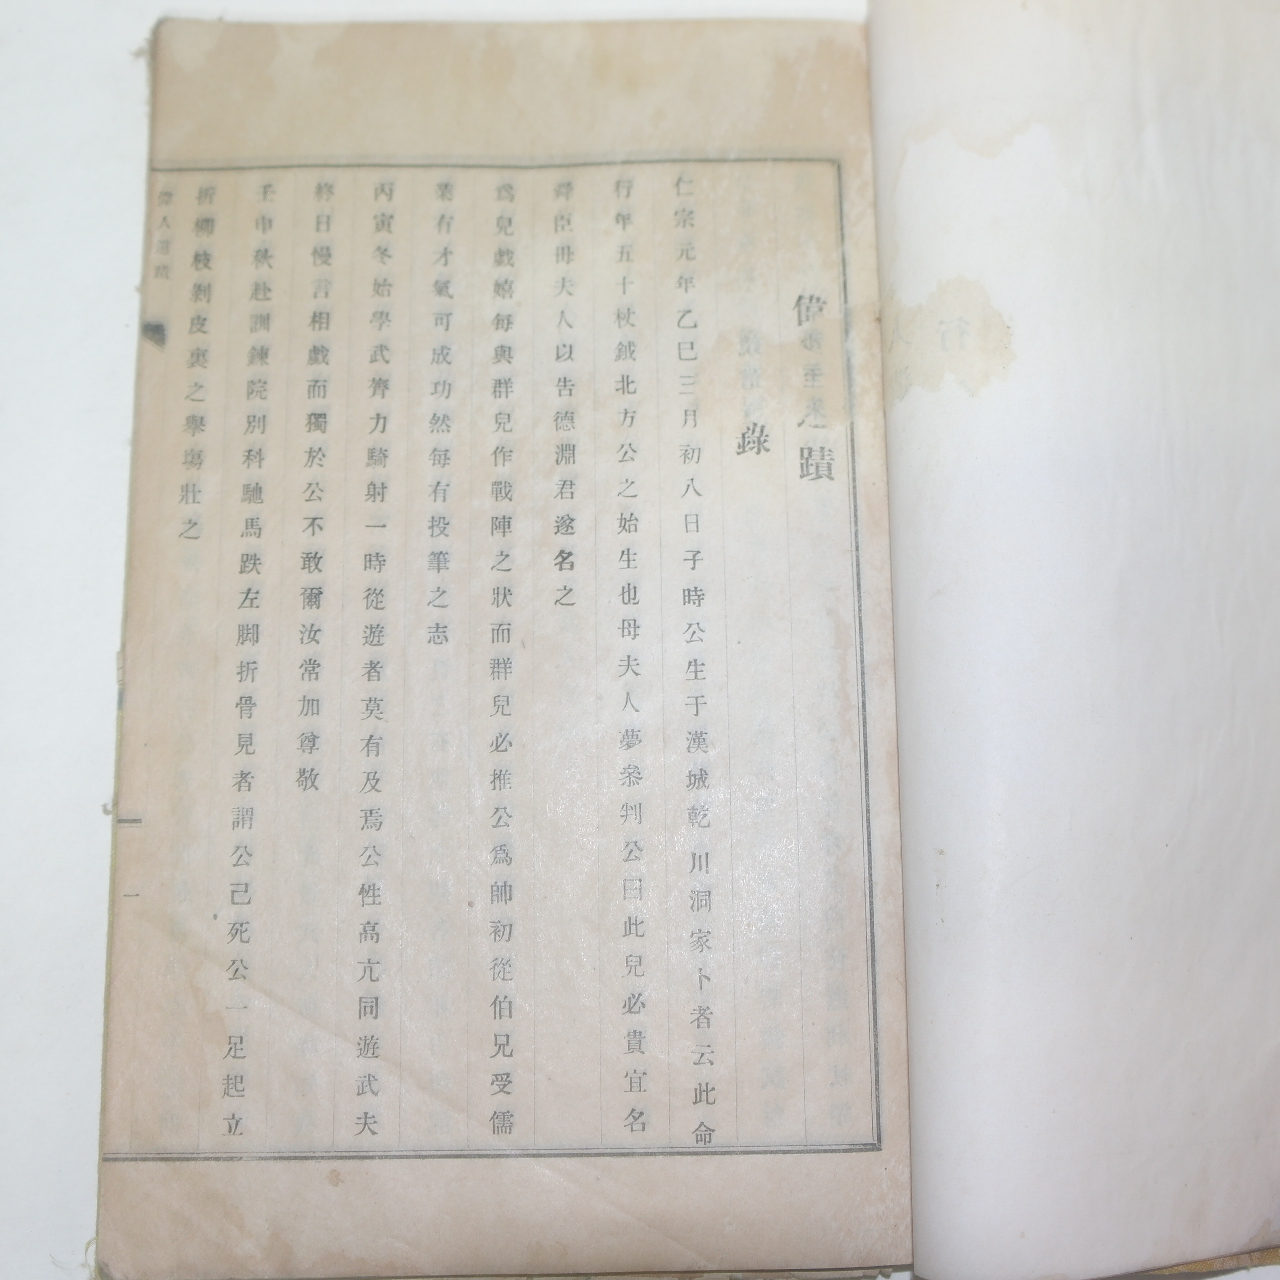 偉人遺蹟
錄
仁宗元年乙巳三月初八日子時公生于漢城乾川洞家卜者云此命
行年五十杖鉞北方公之始生也母夫人夢叅判公曰此兒必貴宜名
舜臣母夫人以告德淵君遂名之
爲兒戱嬉每與群兒作戰陣之狀而群兒必推公爲帥初從伯兄受儒
業有才氣可成功然每有投筆之志
丙寅冬始學武膂力騎射一時從遊者莫有及焉公性高亢同遊武夫
終日慢言相戱而獨於公不敢爾汝常加尊敬
壬申秋赴訓鍊院別科馳馬跌左脚折骨見者謂公己死公一足起立
折柳枝剝皮裹之擧塲壯之
偉人遺蹟
一